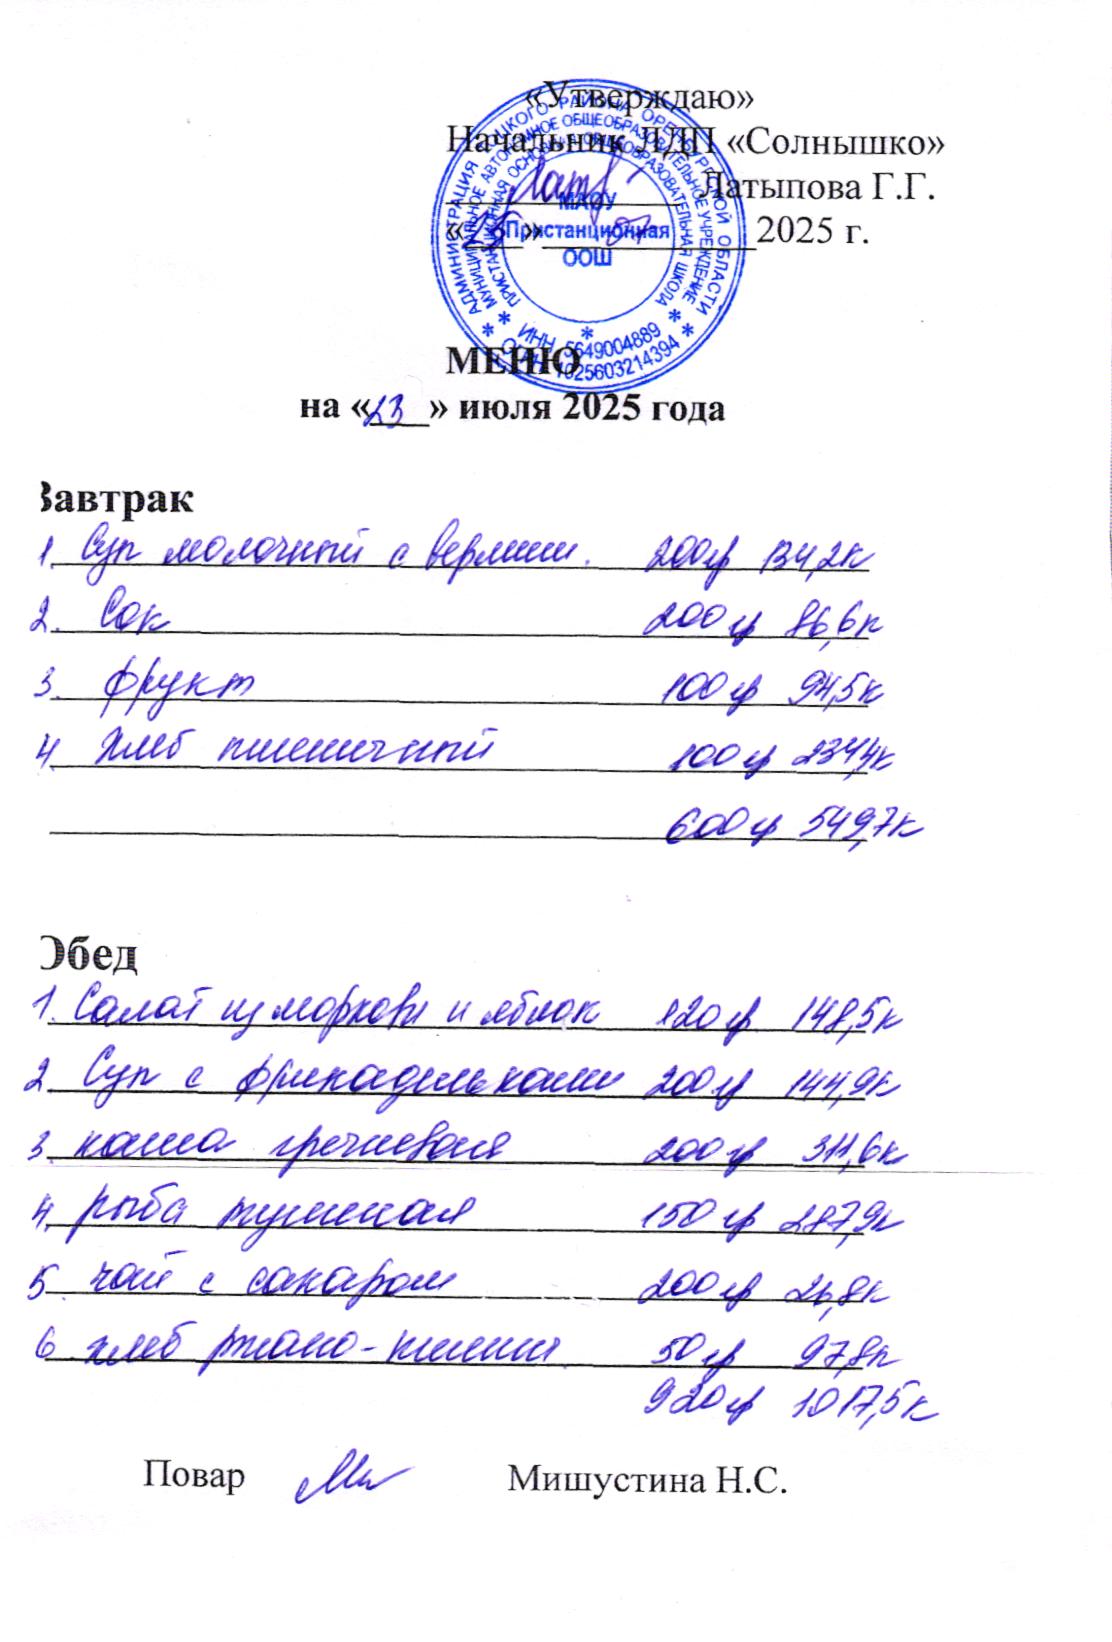 «Утверждаю»
Начальник ЛДП «Солнышко»
Латыпова Г.Г.
« » 07 2025 г.
АДМИНИСТРАЦИЯ ТОЦКОГО РАЙОНА ОРЕНБУРГСКОЙ ОБЛАСТИ
МУНИЦИПАЛЬНОЕ АВТОНОМНОЕ ОБЩЕОБРАЗОВАТЕЛЬНОЕ УЧРЕЖДЕНИЕ
ПРИСТАНЦИОННАЯ ОСНОВНАЯ ОБЩЕОБРАЗОВАТЕЛЬНАЯ ШКОЛА
МАОУ
Пристанционная
ООШ
ИНН 5649004889
ОГРН 1025603214394
МЕНЮ
на «23» июля 2025 года
Завтрак
1. Суп молочный с вермиш. 200гр 134,2к
2. Сок 200гр 86,6к
3. фрукт 100гр 94,5к
4 Хлеб пшеничный 100гр 234,4к
600гр 549,7к
Обед
1. Салат из моркови и яблок 120гр 148,5к
2. Суп с фрикадельками 200гр 144,9к
3. каша гречневая 200гр 311,6к
4. рыба тушеная 150гр 287,9к
5. чай с сахаром 200гр 26,8к
6 хлеб ржано-пшенич. 50гр 97,8к
920гр 1017,5к
Повар Мишустина Н.С.